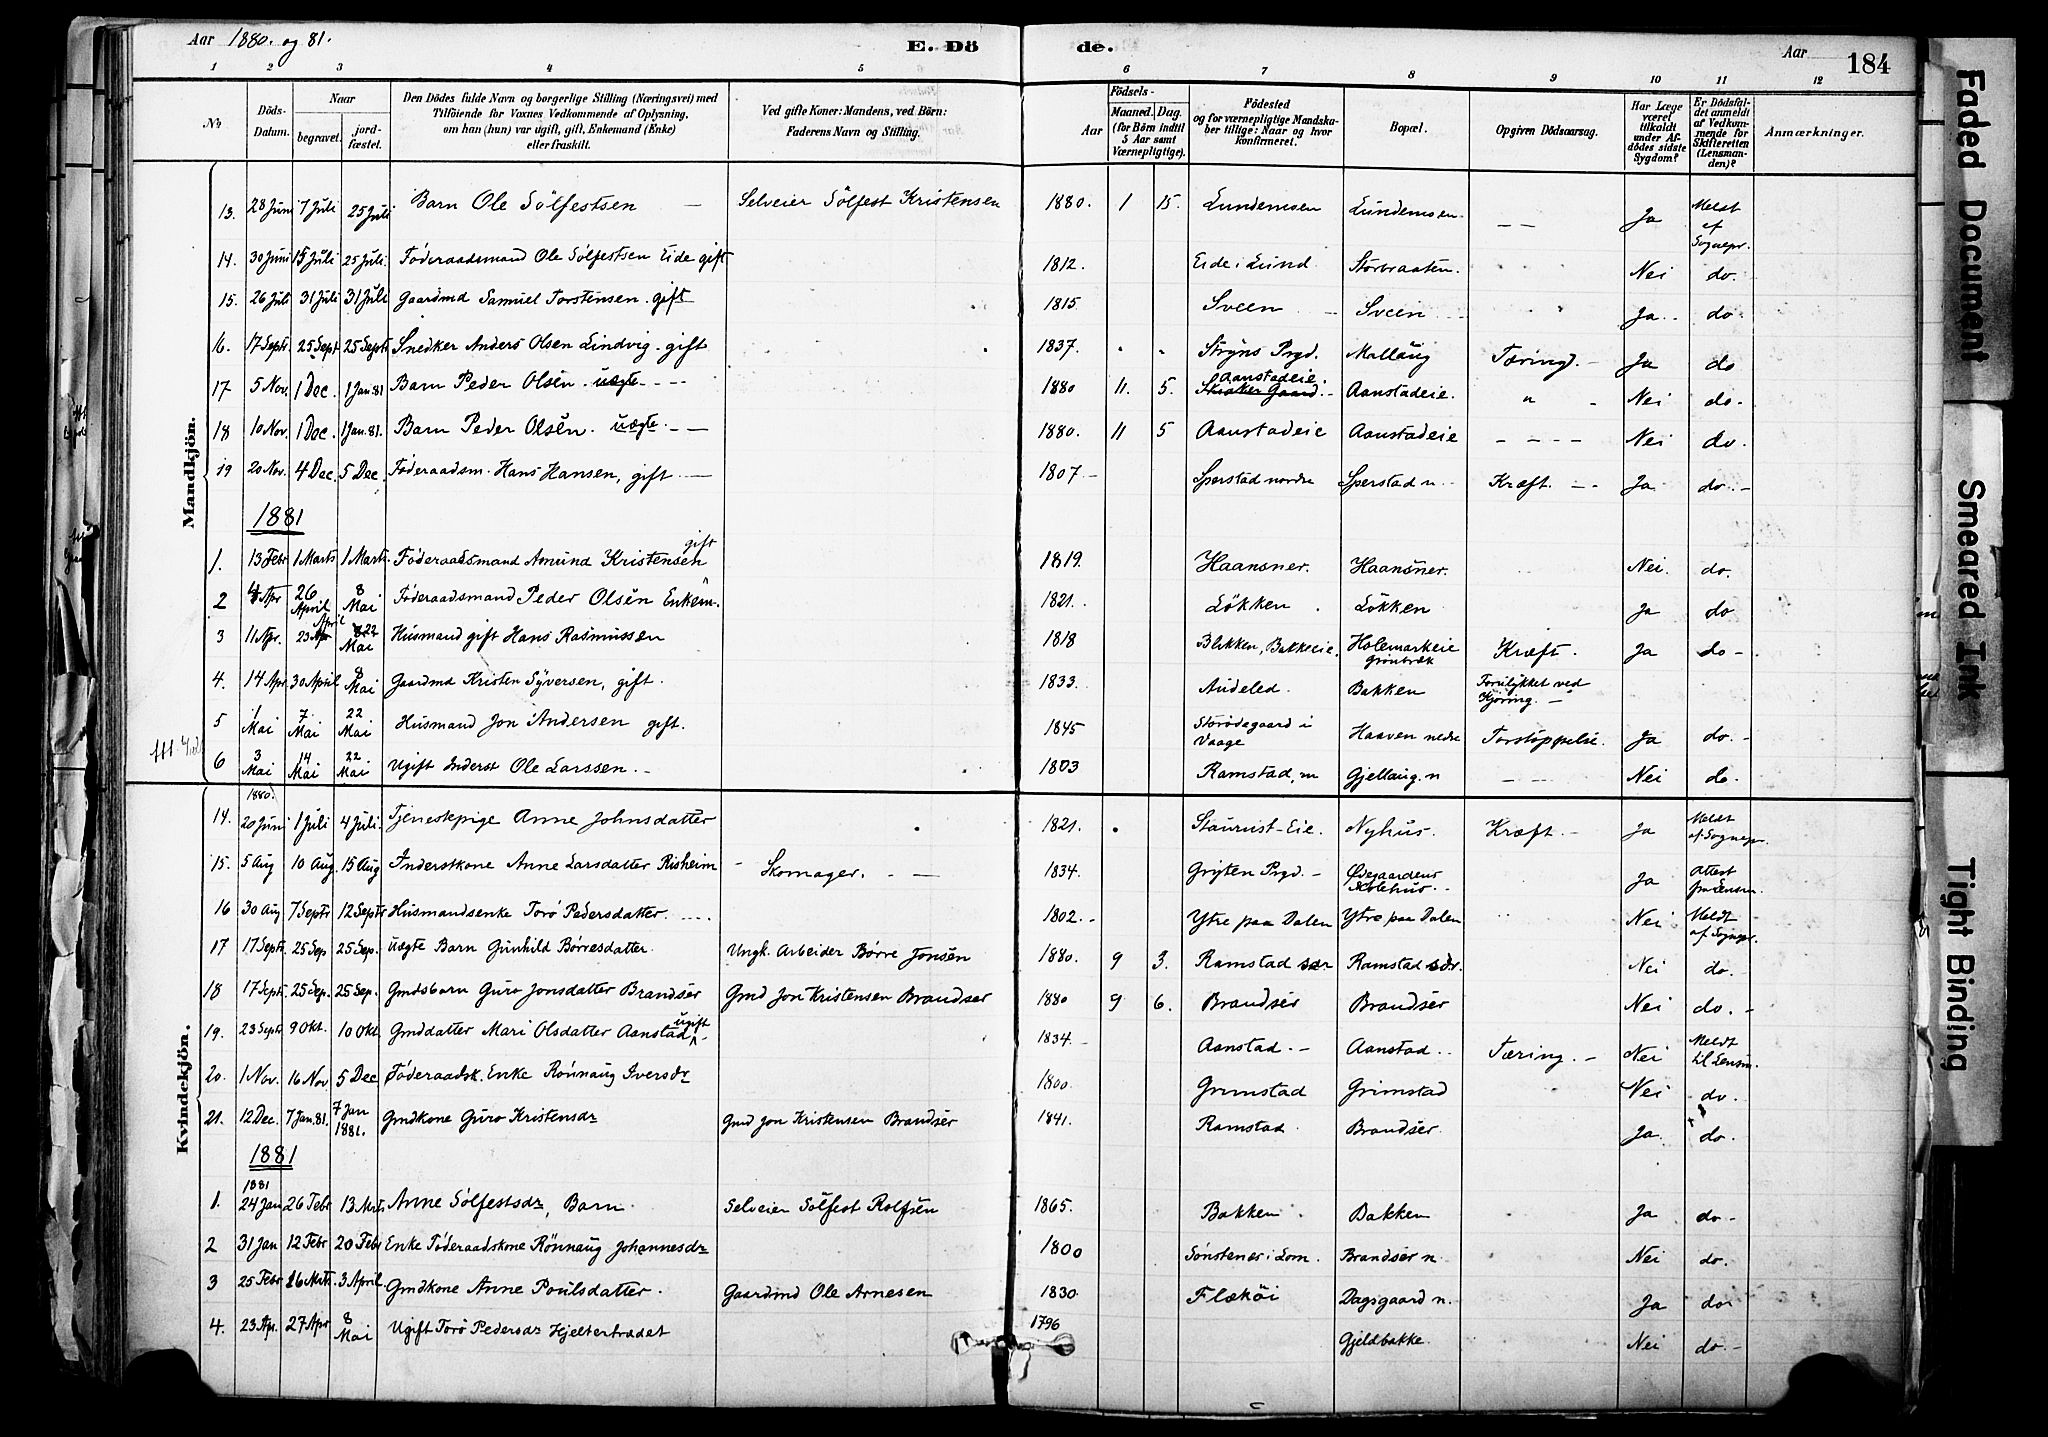 Aar 1880. og 81.
E. Dö de.
Aar 184
1 2 3 4 5 6 7 8 9 10 11 12
No. Döds-Datum. Naar begravet. jord-fæstet. Den Dödes fulde Navn og borgerlige Stilling (Næringsvei) med Tilföiende for Voxnes Vedkommende af Oplysning, om han (hun) var ugift, gift, Enkemand (Enke) eller fraskilt. Ved gifte Koner: Mandens, ved Börn: Faderens Navn og Stilling. Aar Födsels- Maaned. Dag. (for Börn indtil 5 Aar samt Værnepligtige). Födested og for værnepligtige Mandskaber tillige: Naar og hvor konfirmeret. Bopæl. Opgiven Dödsaarsag. Har Læge været tilkaldt under Afdödes sidste Sygdom? Er Dödsfaldet anmeldt af Vedkommende for Skifteretten (Lensmanden)? Anmærkninger.
Mandkjön.
13. 28 Juni 7 Juli 25 Juli Barn Ole Sölfestsen — Selveier Sölfest Kristensen 1880. 1 15. Lundemoen Lundemoen — — Ja Meldt af Sognepr.
14. 30 Juni 15 Juli 25 Juli. Föderaadsmand Ole Sölfestsen Eide gift 1812. Eide i Lund Storbraaten. Nei do.
15. 26 Juli 31 Juli 31 Juli Gaardmd Samuel Torstensen. gift 1815. Sveen Sveen Ja do.
16. 17 Septr. 25 Sept 25 Septr Snedker Anders Olsen Lindvig. gift 1837. Stryns Prgd. Mollaug Tæring. — Ja do
17 5 Nov. 1 Dec. 1 Jan. 81 Barn Peder Olsen. uægte 1880 11. 5. Aanstadeie. Aanstadeie. " Nei do.
18 10 Nov. 1 Dec. 1 Jan. 81. Barn Peder Olsen. uægte. — — 1880. 11 5 Aanstadeie Aanstadeie — — — Nei do.
19 20 Nov. 4 Dec. 5 Dec. Föderaadsm. Hans Hansen, gift — 1807 — Sperstad nordre Sperstad n. Kræft. — Ja do. —
1881
1. 13 Febr 1 Marts 1 Marts. Föderaadsmand Amund Kristensen gift 1819. Haansner. Haansner. Nei. do.
2 Apr 26 April 8 Mai Föderaadsmand Peder Olsen Enkem. 1821. Lökken Lökken Ja do
3 11 Apr. 23 April 22 Mai Husmand gift Hans Rasmussen 1818 Blekken, Bakkeeie. Holemarkeie Grönbræk Kræft. Ja do —
4. 14 Apr 30 April 8 Mai Gaardmd Kristen Syversen, gift. 1833. Audeled. Bakken Forulykket ved Kjöring. —
5 1 Mai 7 Mai 22 Mai Husmand Jon Andersen gift. 1845 Storödegaard i Vaage Haaven nedre Forstoppelse. Ja do. —
6 3 Mai 14 Mai 22 Mai Ugift Inderst Ole Larssen. — 1803 Ramstad, n Gjellaug. n — — Nei do.
Kvindekjön.
1880.
14. 20 Juni 1 Juli 4 Juli. Tjenestepige Anne Johnsdatter 1821. Staurust-Eie. Nyhus. Kræft. — Ja Meldt af Sognepr.
15. 5 Aug 10 Aug. 15 Aug Inderstkone Anne Larsdatter Risheim — Skomager. — — 1834. Gryten Prgd. — Ødegaardens Ja Attest fra Lensm.
16 30 Aug 7 Septr 12 Septr Husmandsenke Torö Pedersdatter. 1802. — Ytre paa Dalen Ytre paa Dalen Nei Meldt af Sognepr.
17 17 Septr. 25 Sep 25 Sep. uægte Barn Gunhild Börresdatter. Ungk. Arbeider Börre Jonsen 1880. 9 3. Ramstad sdr Ramstad sdr. Nei do.
18 17 Sept. 25 Sep. 25 Sep. Gmdsbarn Guro Jonsdatter Brandsör Gmd Jon Kristensen Brandsör 1880 9 6. Brandsör Brandsör Nei do. —
19. 23 Septr 9 Okt. 10 Okt. Gmddatter Mari Olsdatter Aanstad ugift — 1834. — Aanstad. — Aanstad. Tæring. — Nei Meldt til Lensm.
20. 1 Nov. 16 Nov 5 Dec Föderaadsk. Enke Rönnaug Iversdr 1800. Grimstad Grimstad Nei do.
21. 12 Dec. 7 Jan. 81. 7 Jan 1881. Gmdkone Guro Kristensdr Gmd Jon Kristensen Brandsör 1841. Ramstad Brandsör. Ja do.
1881
1881
1. 24 Jan 26 Febr 13 Mrts Anne Sölfestsdr, Barn. Selveier Sölfest Rolfsen 1865. Bakken Bakken Ja do —
2 31 Jan 12 Febr 20 Febr Enke Föderaadskone Rönnaug Johannesdr 1800 Sönstenes i Lom. Brandsör n Nei do.
3 25 Febr 16 Mrts. 3 April. Gmdkone Anne Poulsdatter. Gaardmd Ole Arnesen 1830. Flæköi Dagsgaard n. Ja do.
4. 23 Ap. 27 Apr 8 Mai Ugift Torö Pedersdr Hjeltertrædet 1796 Gjeldbakke. Nei do. —
Faded Document
Smeared Ink
Tight Binding